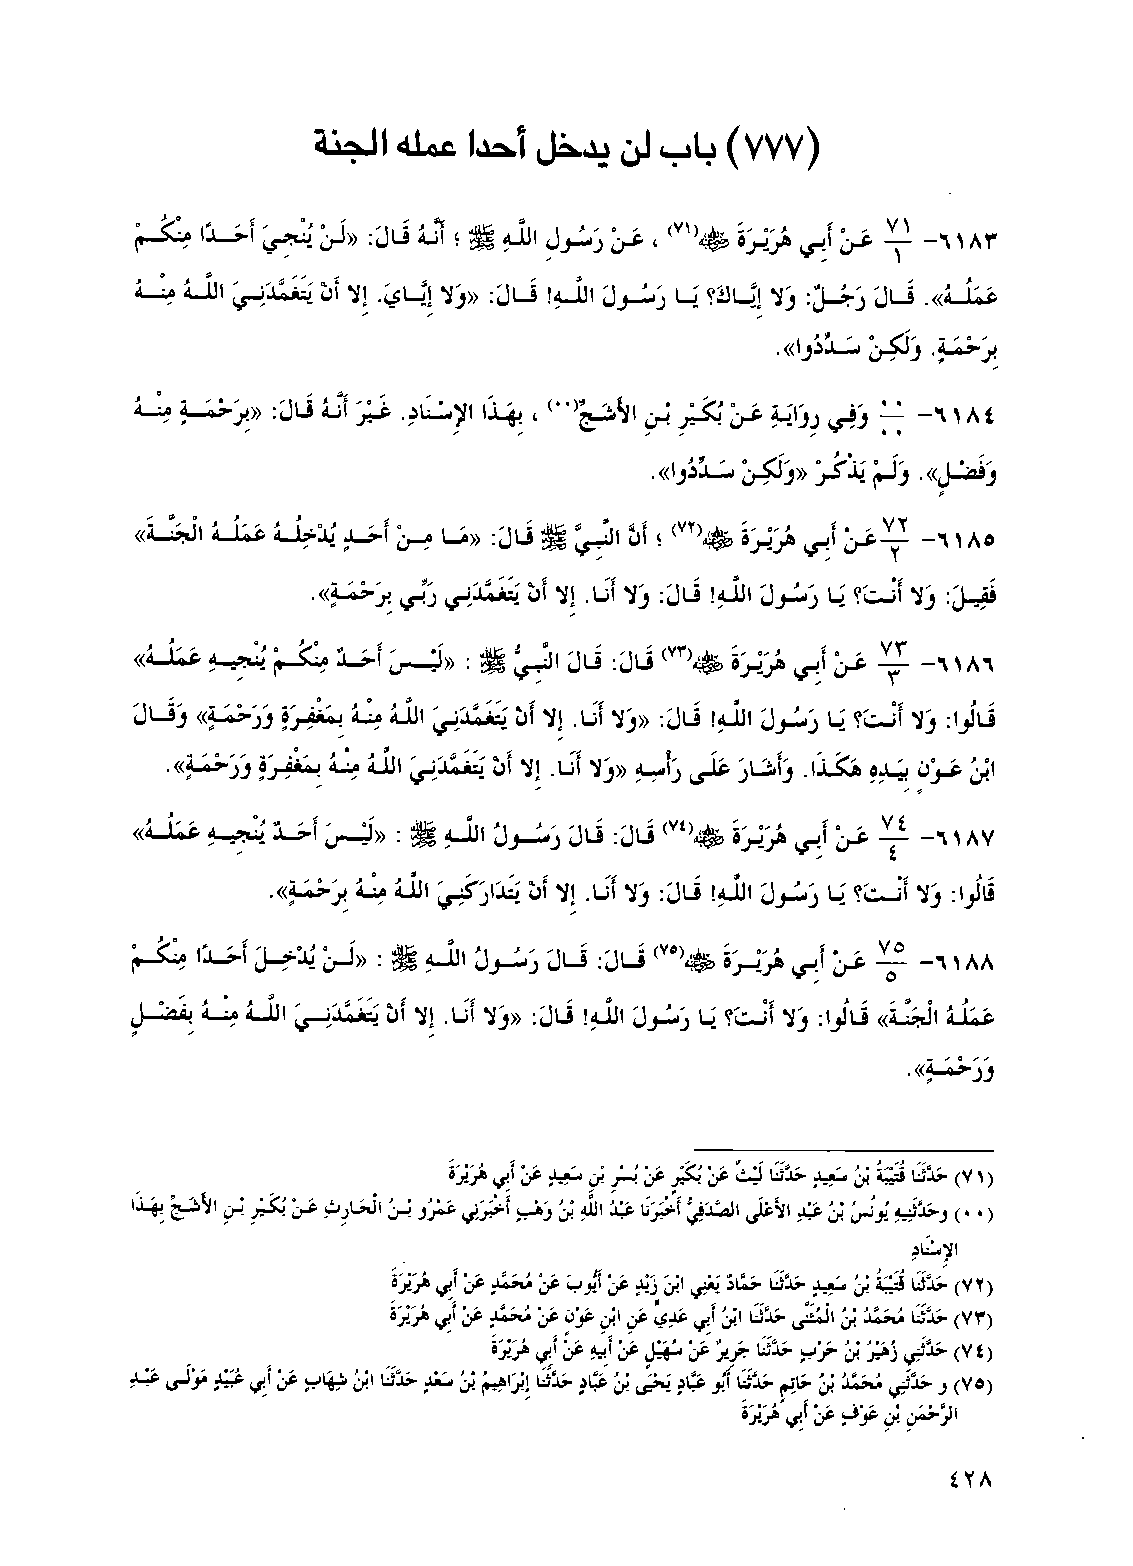 (٧٧٧) باب لن يدخل أحدا عمله الجنة
٦١٨٣- ٧١/١ عَنْ أَبِي هُرَيْرَةَ ﵁(٧١) ، عَنْ رَسُولِ اللَّهِ ﷺ ؛ أَنَّهُ قَالَ: «لَنْ يُنْجِيَ أَحَدًا مِنْكُمْ
عَمَلُهُ». قَالَ رَجُلٌ: وَلا إِيَّاكَ؟ يَا رَسُولَ اللَّهِ! قَالَ: «وَلا إِيَّايَ. إِلا أَنْ يَتَغَمَّدَنِيَ اللَّهُ مِنْهُ
بِرَحْمَةٍ. وَلَكِنْ سَدِّدُوا».
٦١٨٤- ٠٠/٠٠ وَفِي رِوَايَةٍ عَنْ بُكَيْرِ بْنِ الأَشَجِّ(٠٠) ، بِهَذَا الإِسْنَادِ. غَيْرَ أَنَّهُ قَالَ: «بِرَحْمَةٍ مِنْهُ
وَفَضْلٍ». وَلَمْ يَذْكُرْ «وَلَكِنْ سَدِّدُوا».
٦١٨٥- ٧٢/٢ عَنْ أَبِي هُرَيْرَةَ ﵁(٧٢) ؛ أَنَّ النَّبِيَّ ﷺ قَالَ: «مَا مِنْ أَحَدٍ يُدْخِلُهُ عَمَلُهُ الْجَنَّةَ»
فَقِيلَ: وَلا أَنْتَ؟ يَا رَسُولَ اللَّهِ! قَالَ: وَلا أَنَا. إِلا أَنْ يَتَغَمَّدَنِي رَبِّي بِرَحْمَةٍ».
٦١٨٦- ٧٣/٣ عَنْ أَبِي هُرَيْرَةَ ﵁(٧٣) قَالَ: قَالَ النَّبِيُّ ﷺ : «لَيْسَ أَحَدٌ مِنْكُمْ يُنْجِيهِ عَمَلُهُ»
قَالُوا: وَلا أَنْتَ؟ يَا رَسُولَ اللَّهِ! قَالَ: «وَلا أَنَا. إِلا أَنْ يَتَغَمَّدَنِيَ اللَّهُ مِنْهُ بِمَغْفِرَةٍ وَرَحْمَةٍ» وَقَالَ
ابْنُ عَوْنٍ بِيَدِهِ هَكَذَا. وَأَشَارَ عَلَى رَأْسِهِ «وَلا أَنَا. إِلا أَنْ يَتَغَمَّدَنِيَ اللَّهُ مِنْهُ بِمَغْفِرَةٍ وَرَحْمَةٍ».
٦١٨٧- ٧٤/٤ عَنْ أَبِي هُرَيْرَةَ ﵁(٧٤) قَالَ: قَالَ رَسُولُ اللَّهِ ﷺ : «لَيْسَ أَحَدٌ يُنْجِيهِ عَمَلُهُ»
قَالُوا: وَلا أَنْتَ؟ يَا رَسُولَ اللَّهِ! قَالَ: وَلا أَنَا. إِلا أَنْ يَتَدَارَكَنِيَ اللَّهُ مِنْهُ بِرَحْمَةٍ».
٦١٨٨- ٧٥/٥ عَنْ أَبِي هُرَيْرَةَ ﵁(٧٥) قَالَ: قَالَ رَسُولُ اللَّهِ ﷺ : «لَنْ يُدْخِلَ أَحَدًا مِنْكُمْ
عَمَلُهُ الْجَنَّةَ» قَالُوا: وَلا أَنْتَ؟ يَا رَسُولَ اللَّهِ! قَالَ: «وَلا أَنَا. إِلا أَنْ يَتَغَمَّدَنِيَ اللَّهُ مِنْهُ بِفَضْلٍ
وَرَحْمَةٍ».
(٧١) حَدَّثَنَا قُتَيْبَةُ بْنُ سَعِيدٍ حَدَّثَنَا لَيْثٌ عَنْ بُكَيْرٍ عَنْ بُسْرِ بْنِ سَعِيدٍ عَنْ أَبِي هُرَيْرَةَ
(٠٠) وحَدَّثَنِيهِ يُونُسُ بْنُ عَبْدِ الأَعْلَى الصَّدَفِيُّ أَخْبَرَنَا عَبْدُ اللَّهِ بْنُ وَهْبٍ أَخْبَرَنِي عَمْرُو بْنُ الْحَارِثِ عَنْ بُكَيْرِ بْنِ الأَشَجِّ بِهَذَا
الإِسْنَادِ
(٧٢) حَدَّثَنَا قُتَيْبَةُ بْنُ سَعِيدٍ حَدَّثَنَا حَمَّادٌ يَعْنِي ابْنَ زَيْدٍ عَنْ أَيُّوبَ عَنْ مُحَمَّدٍ عَنْ أَبِي هُرَيْرَةَ
(٧٣) حَدَّثَنَا مُحَمَّدُ بْنُ الْمُثَنَّى حَدَّثَنَا ابْنُ أَبِي عَدِيٍّ عَنِ ابْنِ عَوْنٍ عَنْ مُحَمَّدٍ عَنْ أَبِي هُرَيْرَةَ
(٧٤) حَدَّثَنِي زُهَيْرُ بْنُ حَرْبٍ حَدَّثَنَا جَرِيرٌ عَنْ سُهَيْلٍ عَنْ أَبِيهِ عَنْ أَبِي هُرَيْرَةَ
(٧٥) و حَدَّثَنِي مُحَمَّدُ بْنُ حَاتِمٍ حَدَّثَنَا أَبُو عَبَّادٍ يَحْيَى بْنُ عَبَّادٍ حَدَّثَنَا إِبْرَاهِيمُ بْنُ سَعْدٍ حَدَّثَنَا ابْنُ شِهَابٍ عَنْ أَبِي عُبَيْدٍ مَوْلَى عَبْدِ
الرَّحْمَنِ بْنِ عَوْفٍ عَنْ أَبِي هُرَيْرَةَ
٤٢٨